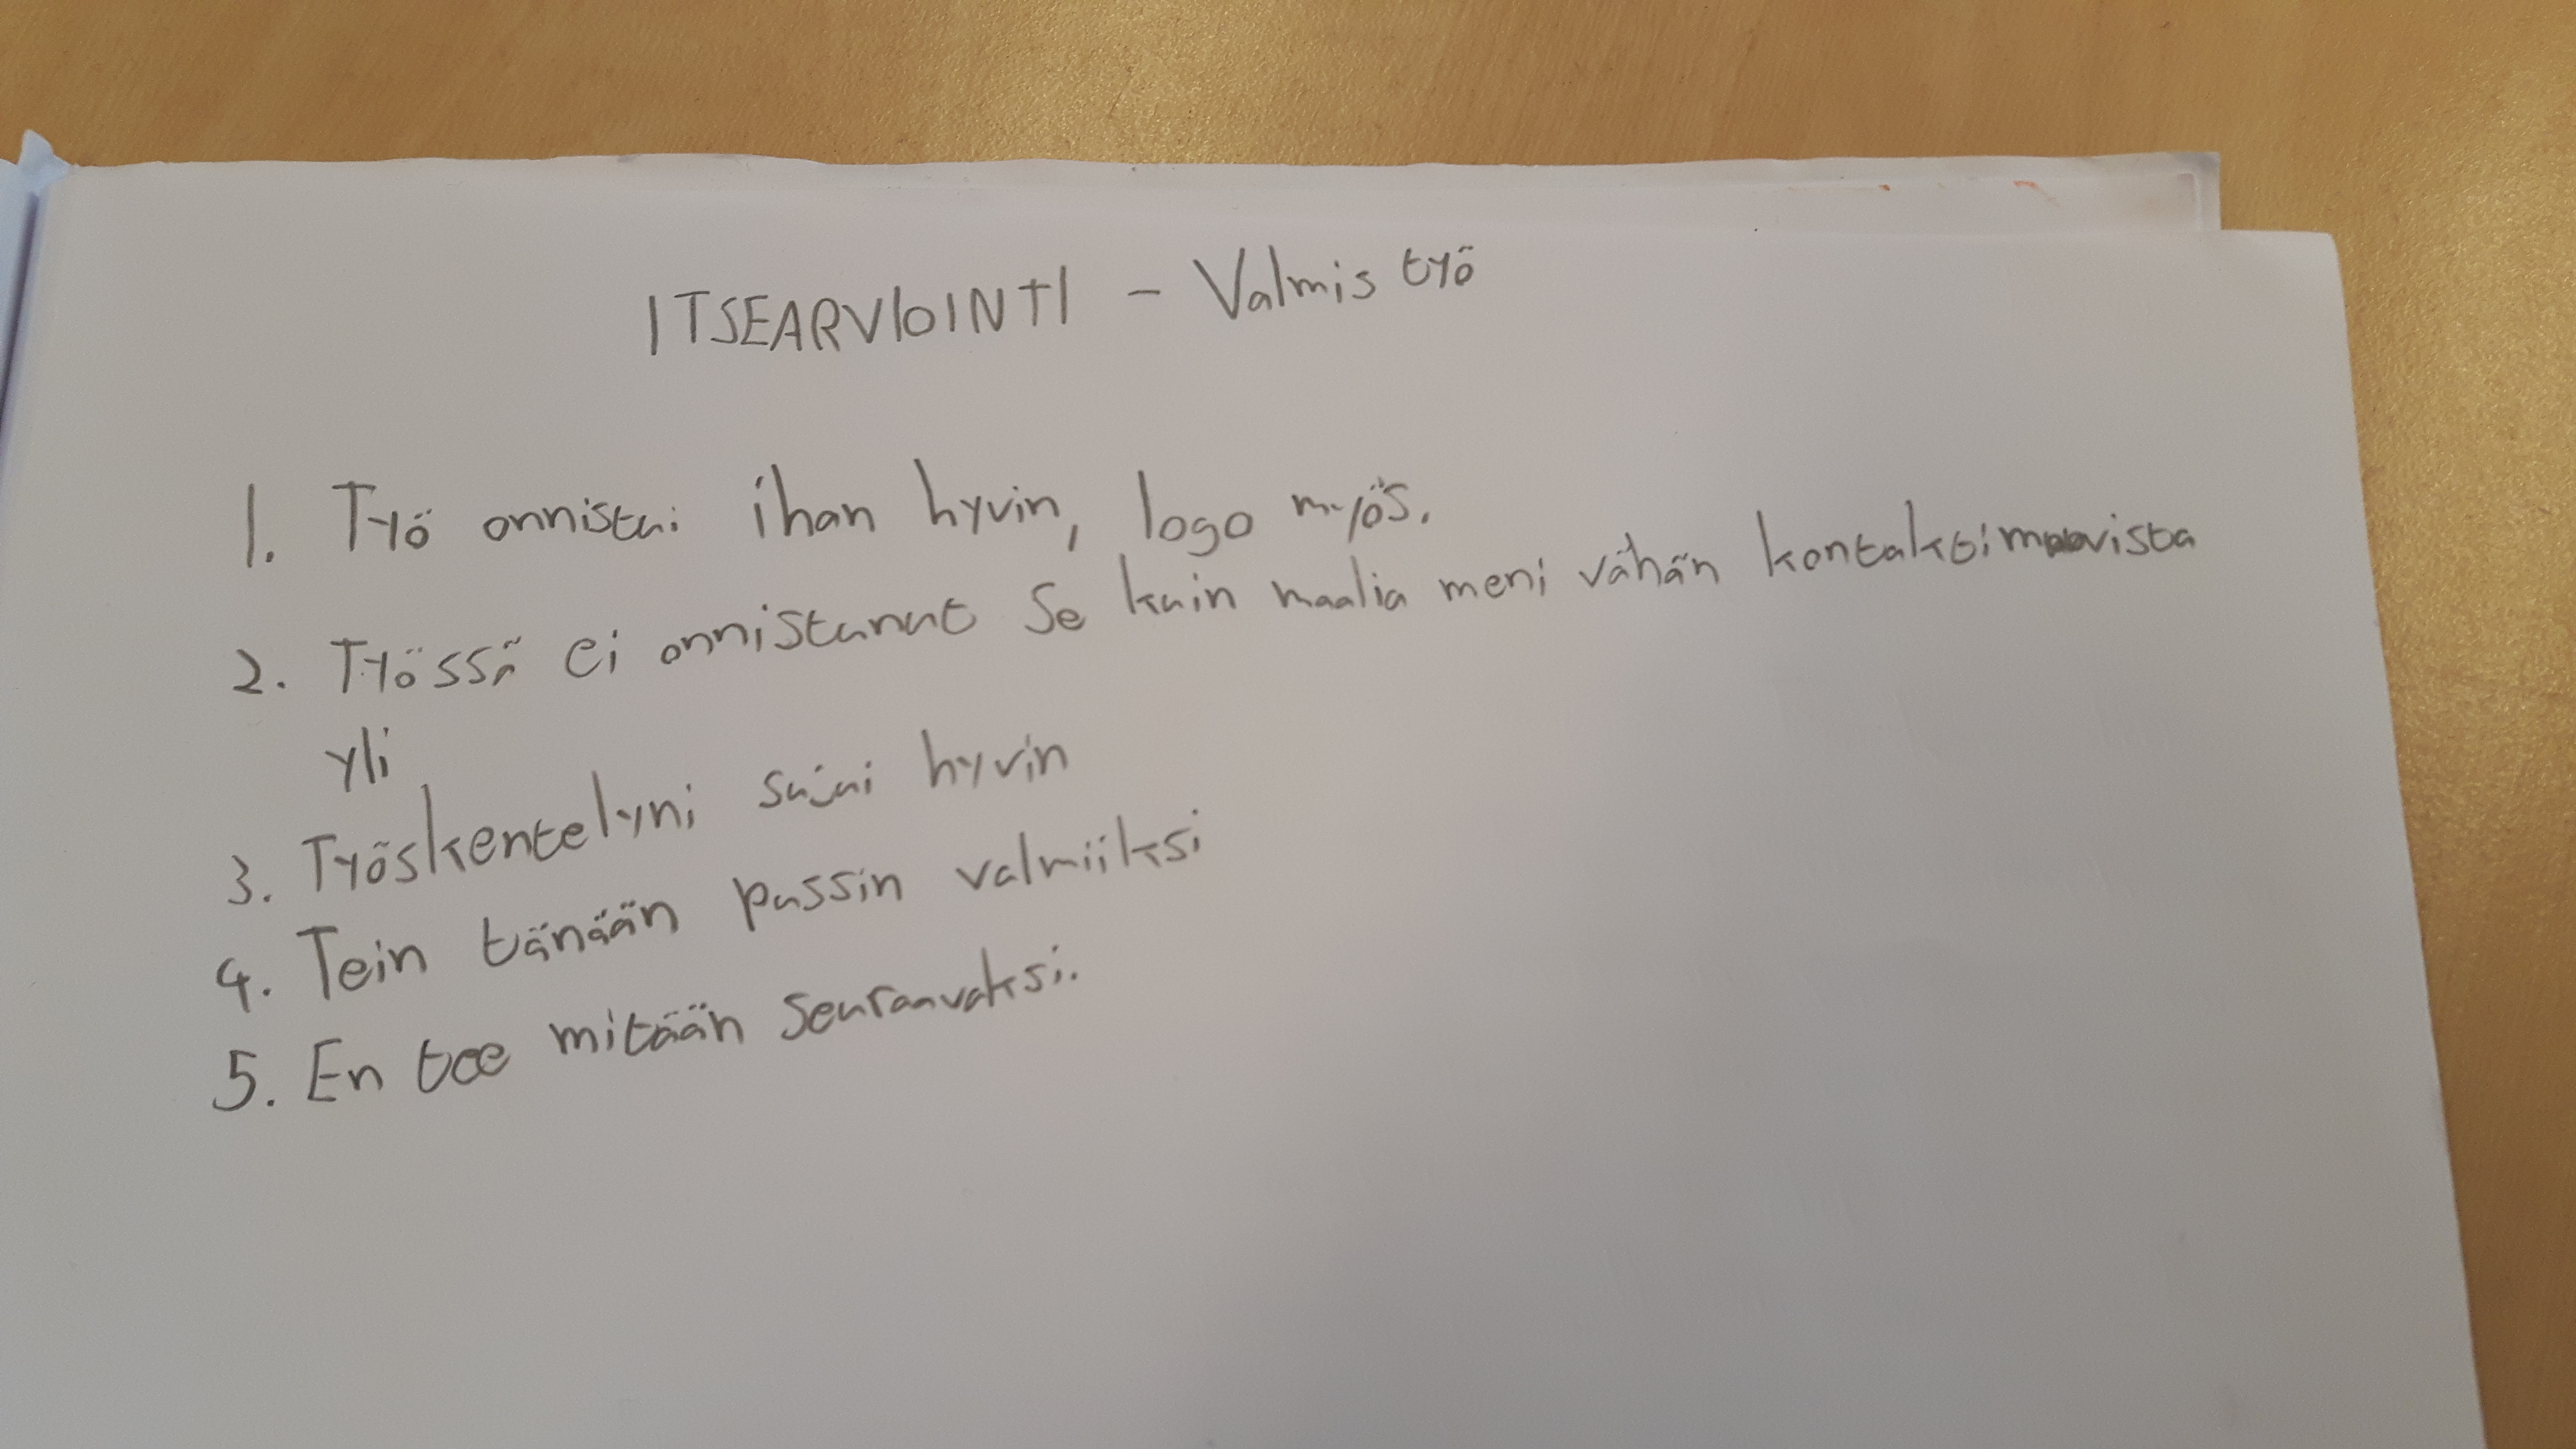 ITSEARVIOINTI - Valmis työ
1. Työ onnistui ihan hyvin, logo myös.
2. Työssä ei onnistunut se kuin maalia meni vähän kontaktimuovista
yli
3. Työskentelyni sujui hyvin
4. Tein tänään pussin valmiiksi
5. En tee mitään seuraavaksi.